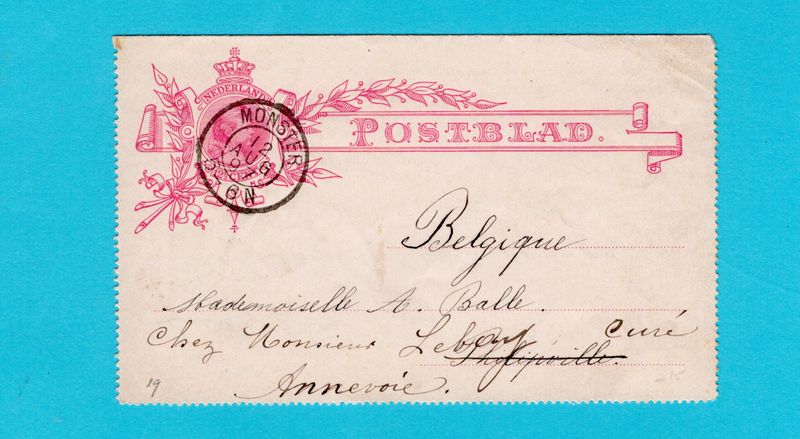 NEDERLAND
POSTBLAD.
MONSTER
12
AUG
6N
Belgique
Mademoiselle A. Balle.
Chez Monsieur Leboy Curé
Philippville.
Annevoie.
19